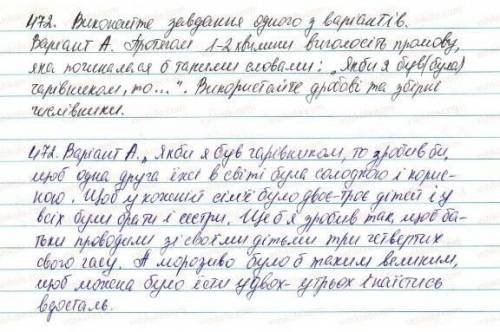 472. Виконайте завдання одного з варіантів.
Варіант А. Протягом 1-2 хвилини виголосіть промову,
яка починалася б такими словами: „Якби я був(була)
чарівником, то...". Використайте дробові та збірні
числівники.
472. Варіант А. „Якби я був чарівником, то зробив би,
щоб одна друга їжі в світі була солодкою і корис-
ною. Щоб у кожній сім'ї було двоє-троє дітей і у
всіх були брати і сестри. Ще б я зробив так, щоб ба-
тьки проводили зі своїми дітьми три четвертих
свого часу. А морозиво було б таким великим,
щоб можна було їсти удвох-утрьох і наїстись
вдосталь.